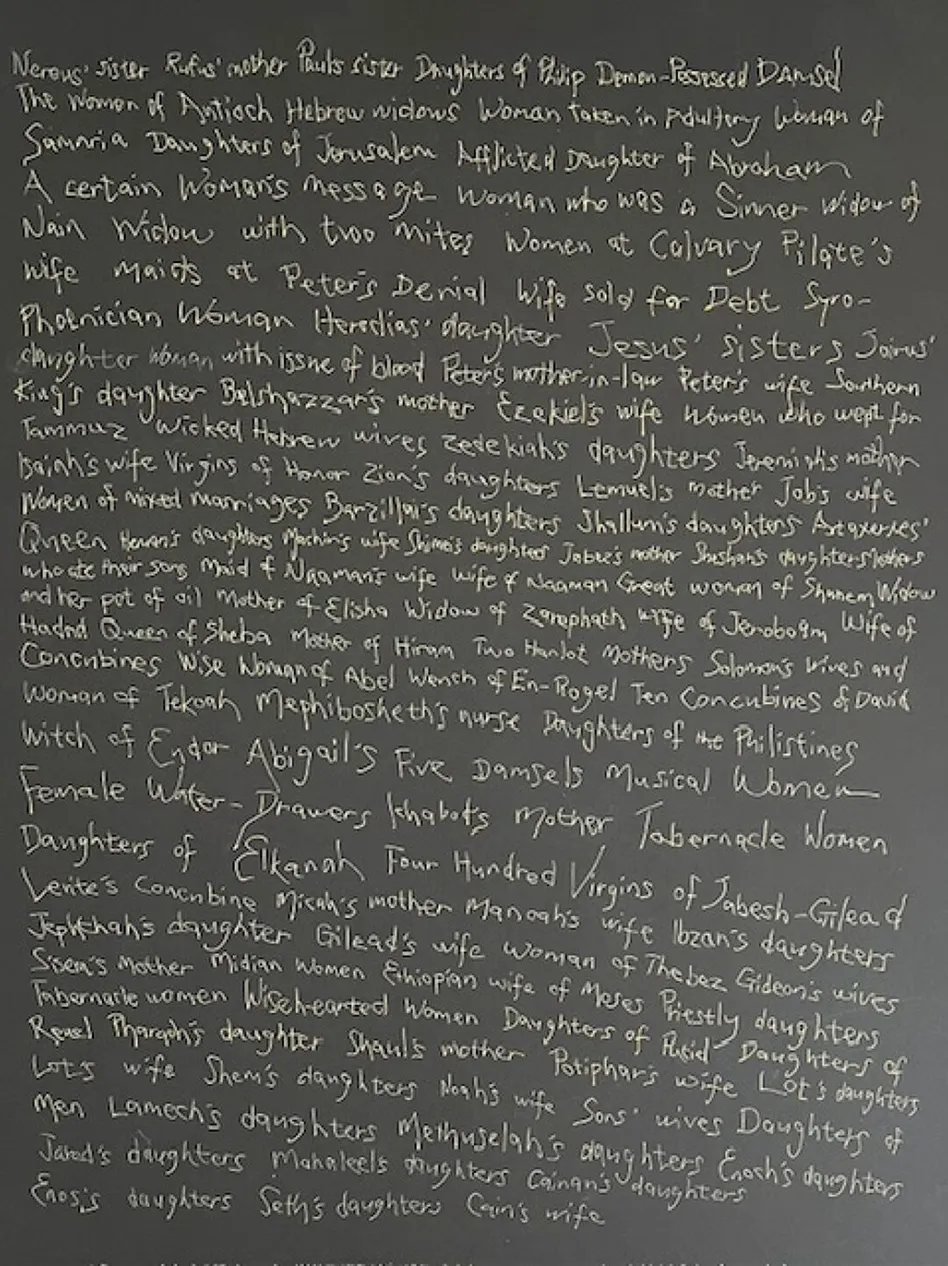 Nereus' sister Rufus' mother Paul's sister Daughters of Philip Demon-Possessed Damsel
The Women of Antioch Hebrew widows Woman taken in Adultery Woman of
Samaria Daughters of Jerusalem Afflicted Daughter of Abraham
A certain Woman's message Woman who was a Sinner Widow of
Nain Widow with two mites Women at Calvary Pilate's
wife Maids at Peter's Denial Wife sold for Debt Syro-
Phoenician Woman Herodias' daughter Jesus' sisters Jairus'
daughter Woman with issue of blood Peter's mother-in-law Peter's wife Southern
King's daughter Belshazzar's mother Ezekiel's wife Women who wept for
Tammuz Wicked Hebrew wives Zedekiah's daughters Jeremiah's mother
Isaiah's wife Virgins of Honor Zion's daughters Lemuel's mother Job's wife
Women of mixed marriages Barzillai's daughters Shallum's daughters Artaxerxes'
Queen Heman's daughters Machir's wife Shimei's daughters Jabez's mother Sheshan's daughters Mothers
who ate their sons Maid of Naaman's wife Wife of Naaman Great woman of Shunem Widow
and her pot of oil Mother of Elisha Widow of Zarephath Wife of Jeroboam Wife of
Hadad Queen of Sheba Mother of Hiram Two Harlot Mothers Solomon's wives and
Concubines Wise Woman of Abel Wench of En-Rogel Ten Concubines of David
Woman of Tekoah Mephibosheth's nurse Daughters of the Philistines
Witch of Endor Abigail's Five Damsels Musical Women
Female Water-Drawers Ichabod's Mother Tabernacle Women
Daughters of Elkanah Four Hundred Virgins of Jabesh-Gilead
Levite's Concubine Micah's mother Manoah's wife Ibzan's daughters
Jephthah's daughter Gilead's wife Woman of Thebez Gideon's wives
Sisera's Mother Midian Women Ethiopian wife of Moses Priestly daughters
Tabernacle women Wisehearted Women Daughters of Putiel Daughters of
Reuel Pharaoh's daughter Shaul's mother Potiphar's wife Lot's daughters
Lot's wife Shem's daughters Noah's wife Sons' wives Daughters of
Men Lamech's daughters Methuselah's daughters Enoch's daughters
Jared's daughters Mahaleel's daughters Cainan's daughters
Enos's daughters Seth's daughters Cain's wife